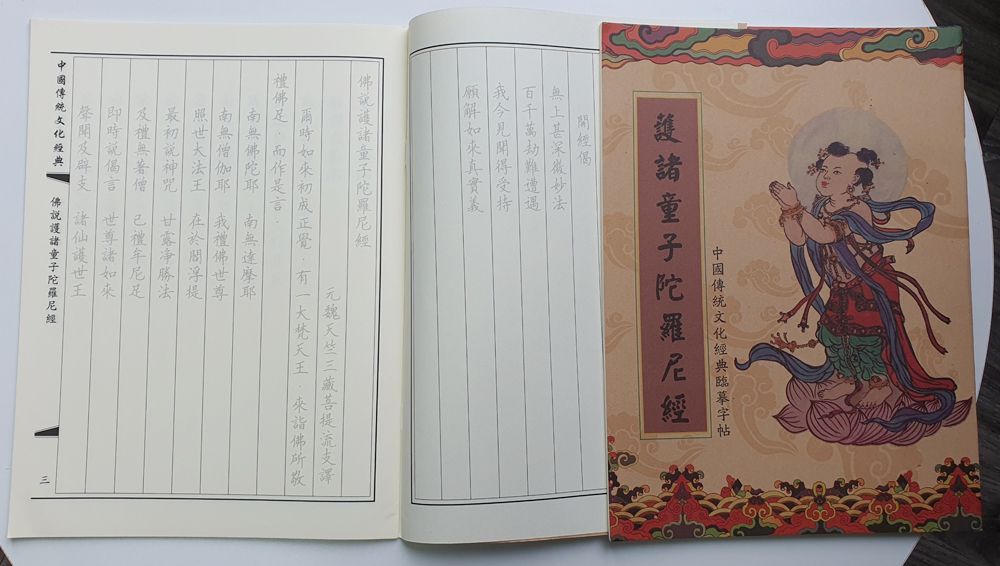 護諸童子陀羅尼經
中國傳統文化經典臨摹字帖
開經偈
無上甚深微妙法
百千萬劫難遭遇
我今見聞得受持
願解如來真實義
佛說護諸童子陀羅尼經
元魏天竺三藏菩提流支譯
爾時如來初成正覺．有一大梵天王．來詣佛所敬
禮佛足．而作是言．
南無佛陀耶 南無達摩耶
南無僧伽耶 我禮佛世尊
照世大法王 在於閻浮提
最初說神咒 甘露淨勝法
及禮無著僧 已禮牟尼足
即時說偈言 世尊諸如來
聲聞及辟支 諸仙護世王
中國傳統文化經典
佛說護諸童子陀羅尼經
三